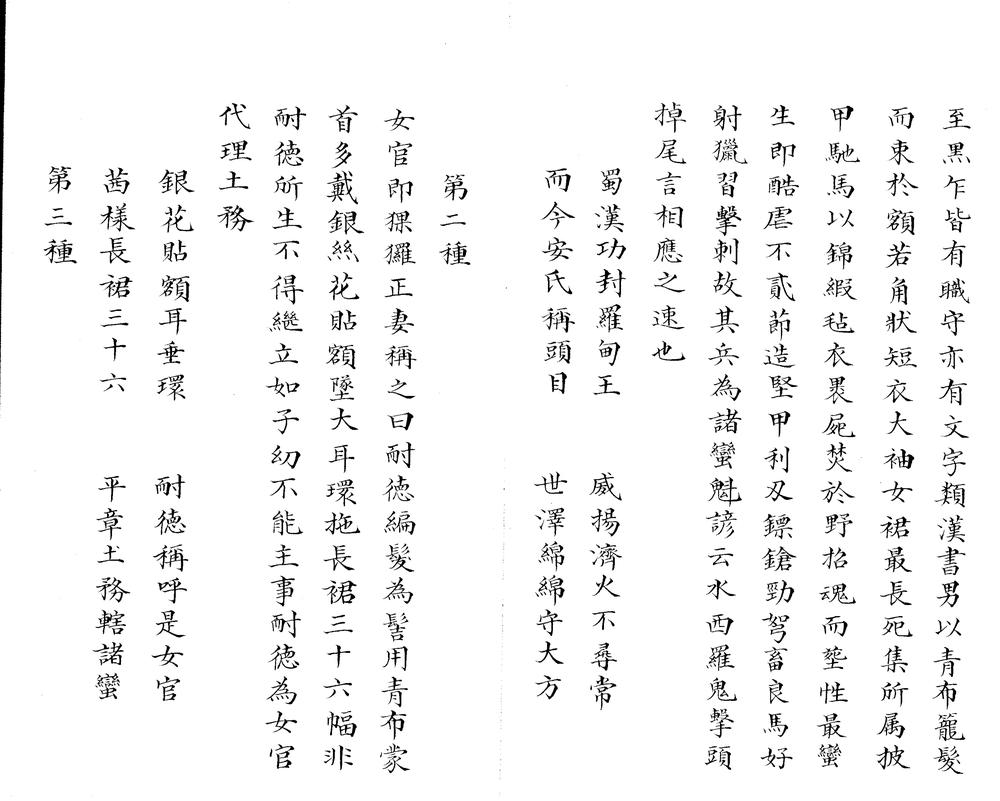 至黒乍皆有職守亦有文字類漢書男以青布籠髮
而束於額若角狀短衣大袖女裙最長死集所属披
甲馳馬以錦緞毡衣褁屍焚於野招魂而塟性最蠻
生即酷虐不貳莭造堅甲利刄鏢鎗勁弩畜良馬好
射獵習擊刺故其兵為諸蠻魁諺云水西羅鬼擊頭
掉尾言相應之速也
蜀漢功封羅甸王 威揚濟火不尋常
而今安氏稱頭目 世澤綿綿守大方
第二種
女官即猓玀正妻稱之曰耐德編髮為髻用青布蒙
首多戴銀絲花貼額墜大耳環拖長裙三十六幅非
耐德所生不得繼立如子幼不能主事耐德為女官
代理土務
銀花貼額耳垂環 耐德稱呼是女官
茜様長裙三十六 平章土務轄諸蠻
第三種